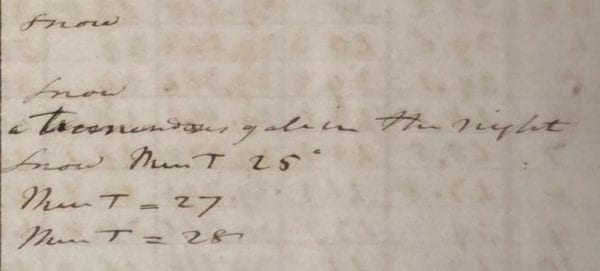 Snow
Snow
a tremendous gale in the night
Snow Min T 25°
Min T = 27
Min T = 28